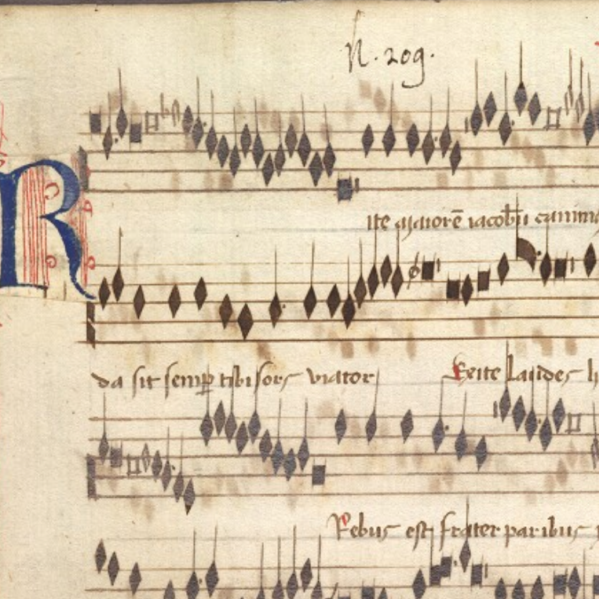 N. 209.
R
ite maiorē iacobū canim
da sit semꝑ tibi sors viator Leite laudes h
Rebus est frater paribus